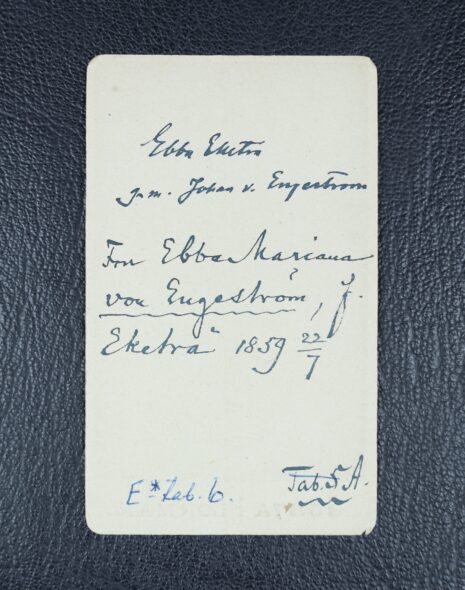 Ebba Eketra
g.m. Johan v. Engeström
Fru Ebba Mariana
von Engeström, f.
Eketrä 1859 22/7
E* Tab. 6.
Tab. 5 A.